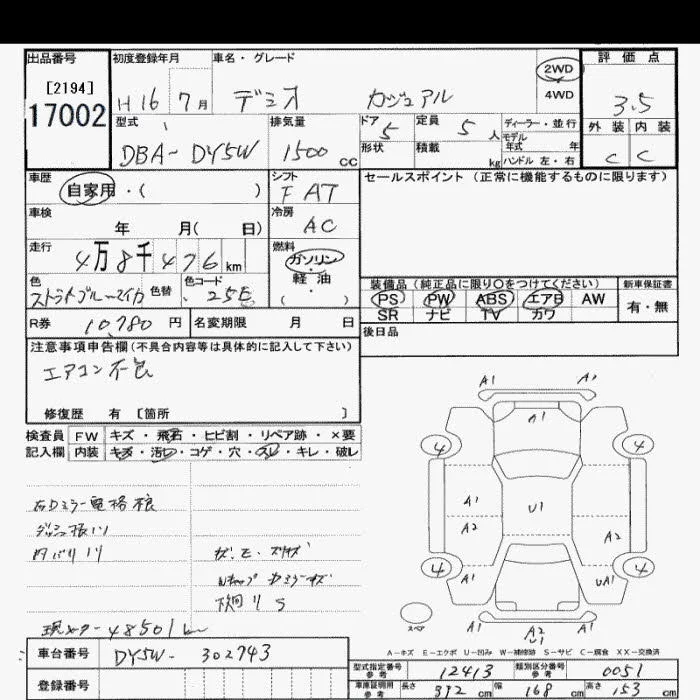 出品番号
[2194]
17002
初度登録年月
H16 7月
車名・グレード
デミオ カジュアル
2WD
4WD
評価点
3.5
外装 内装
C C
型式
DBA-DY5W
排気量
1500 cc
ドア 5
定員 5 人
形状
積載 kg
ディーラー・並行
モデル年式 年
ハンドル 左・右
車歴
自家用・( )
シフト
F AT
セールスポイント(正常に機能するものに限ります)
車検
年 月( 日)
冷房
AC
走行
4万8千476km
燃料
ガソリン
軽油
( )
色
ストラトブルーマイカ
色替
色コード
25E
装備品(純正品に限り○をつけてください)
新車保証書
PS PW ABS エアB AW
有・無
SR ナビ TV カワ
R券 10,780円
名変期限 月 日
後日品
注意事項申告欄(不具合内容等は具体的に記入して下さい)
エアコン不良
修復歴 有 [箇所 ]
検査員
記入欄
FW キズ・飛石・ヒビ割・リペア跡・×要
内装 キズ・汚レ・コゲ・穴・スレ・キレ・破レ
右Dミラー電格
下回りS
現メーター48501km
車台番号
DY5W-302743
登録番号
A1 A1
A1
4 4
A1 U1
A2 A2
4 4
A1 UA1
スペア
A1 A2 A1
U1
A-キズ E-エクボ U-凹み W-補修跡 S-サビ C-腐食 XX-交換済
型式指定番号
参考
12413
類別区分番号
参考
0051
車庫証明用
参考
長さ 392 cm
幅 168 cm
高さ 153 cm